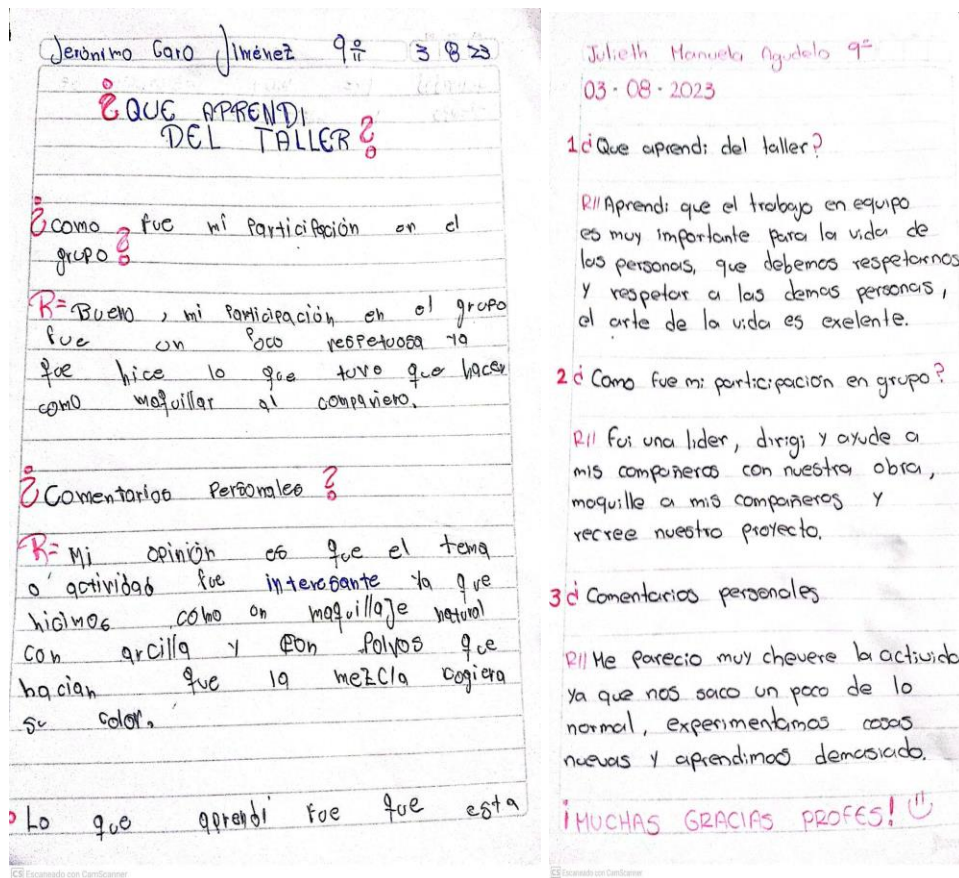 Jerónimo Caro Jiménez 9º 11 3 8 23
¿QUE APRENDI
DEL TALLER?
¿como fue mi Participación en el
grupo?
R= Bueno, mi Participación en el grupo
fue un Poco respetuosa ya
que hice lo que tuvo que hacer
como maquillar al compañero.
¿Comentarios Personales?
R= Mi opinión es que el tema
o actividad fue interesante ya que
hicimos como un maquillaje natural
con arcilla y con Polvos que
hacian que la mezcla cogiera
su color.
Lo que aprendi fue que esta
CS Escaneado con CamScanner
Julieth Manuela Agudelo 9º
03-08-2023
1 ¿Que aprendi del taller?
R// Aprendi que el trabajo en equipo
es muy importante para la vida de
las personas, que debemos respetarnos
y respetar a las demas personas,
el arte de la vida es exelente.
2 ¿Como fue mi participación en grupo?
R// Fui una lider, dirigi y ayude a
mis compañeros con nuestra obra,
maquille a mis compañeros y
recree nuestro proyecto.
3 ¿Comentarios personales
R// Me parecio muy chevere la activida
ya que nos saco un poco de lo
normal, experimentamos cosas
nuevas y aprendimos demasiado.
¡MUCHAS GRACIAS PROFES!
CS Escaneado con CamScanner